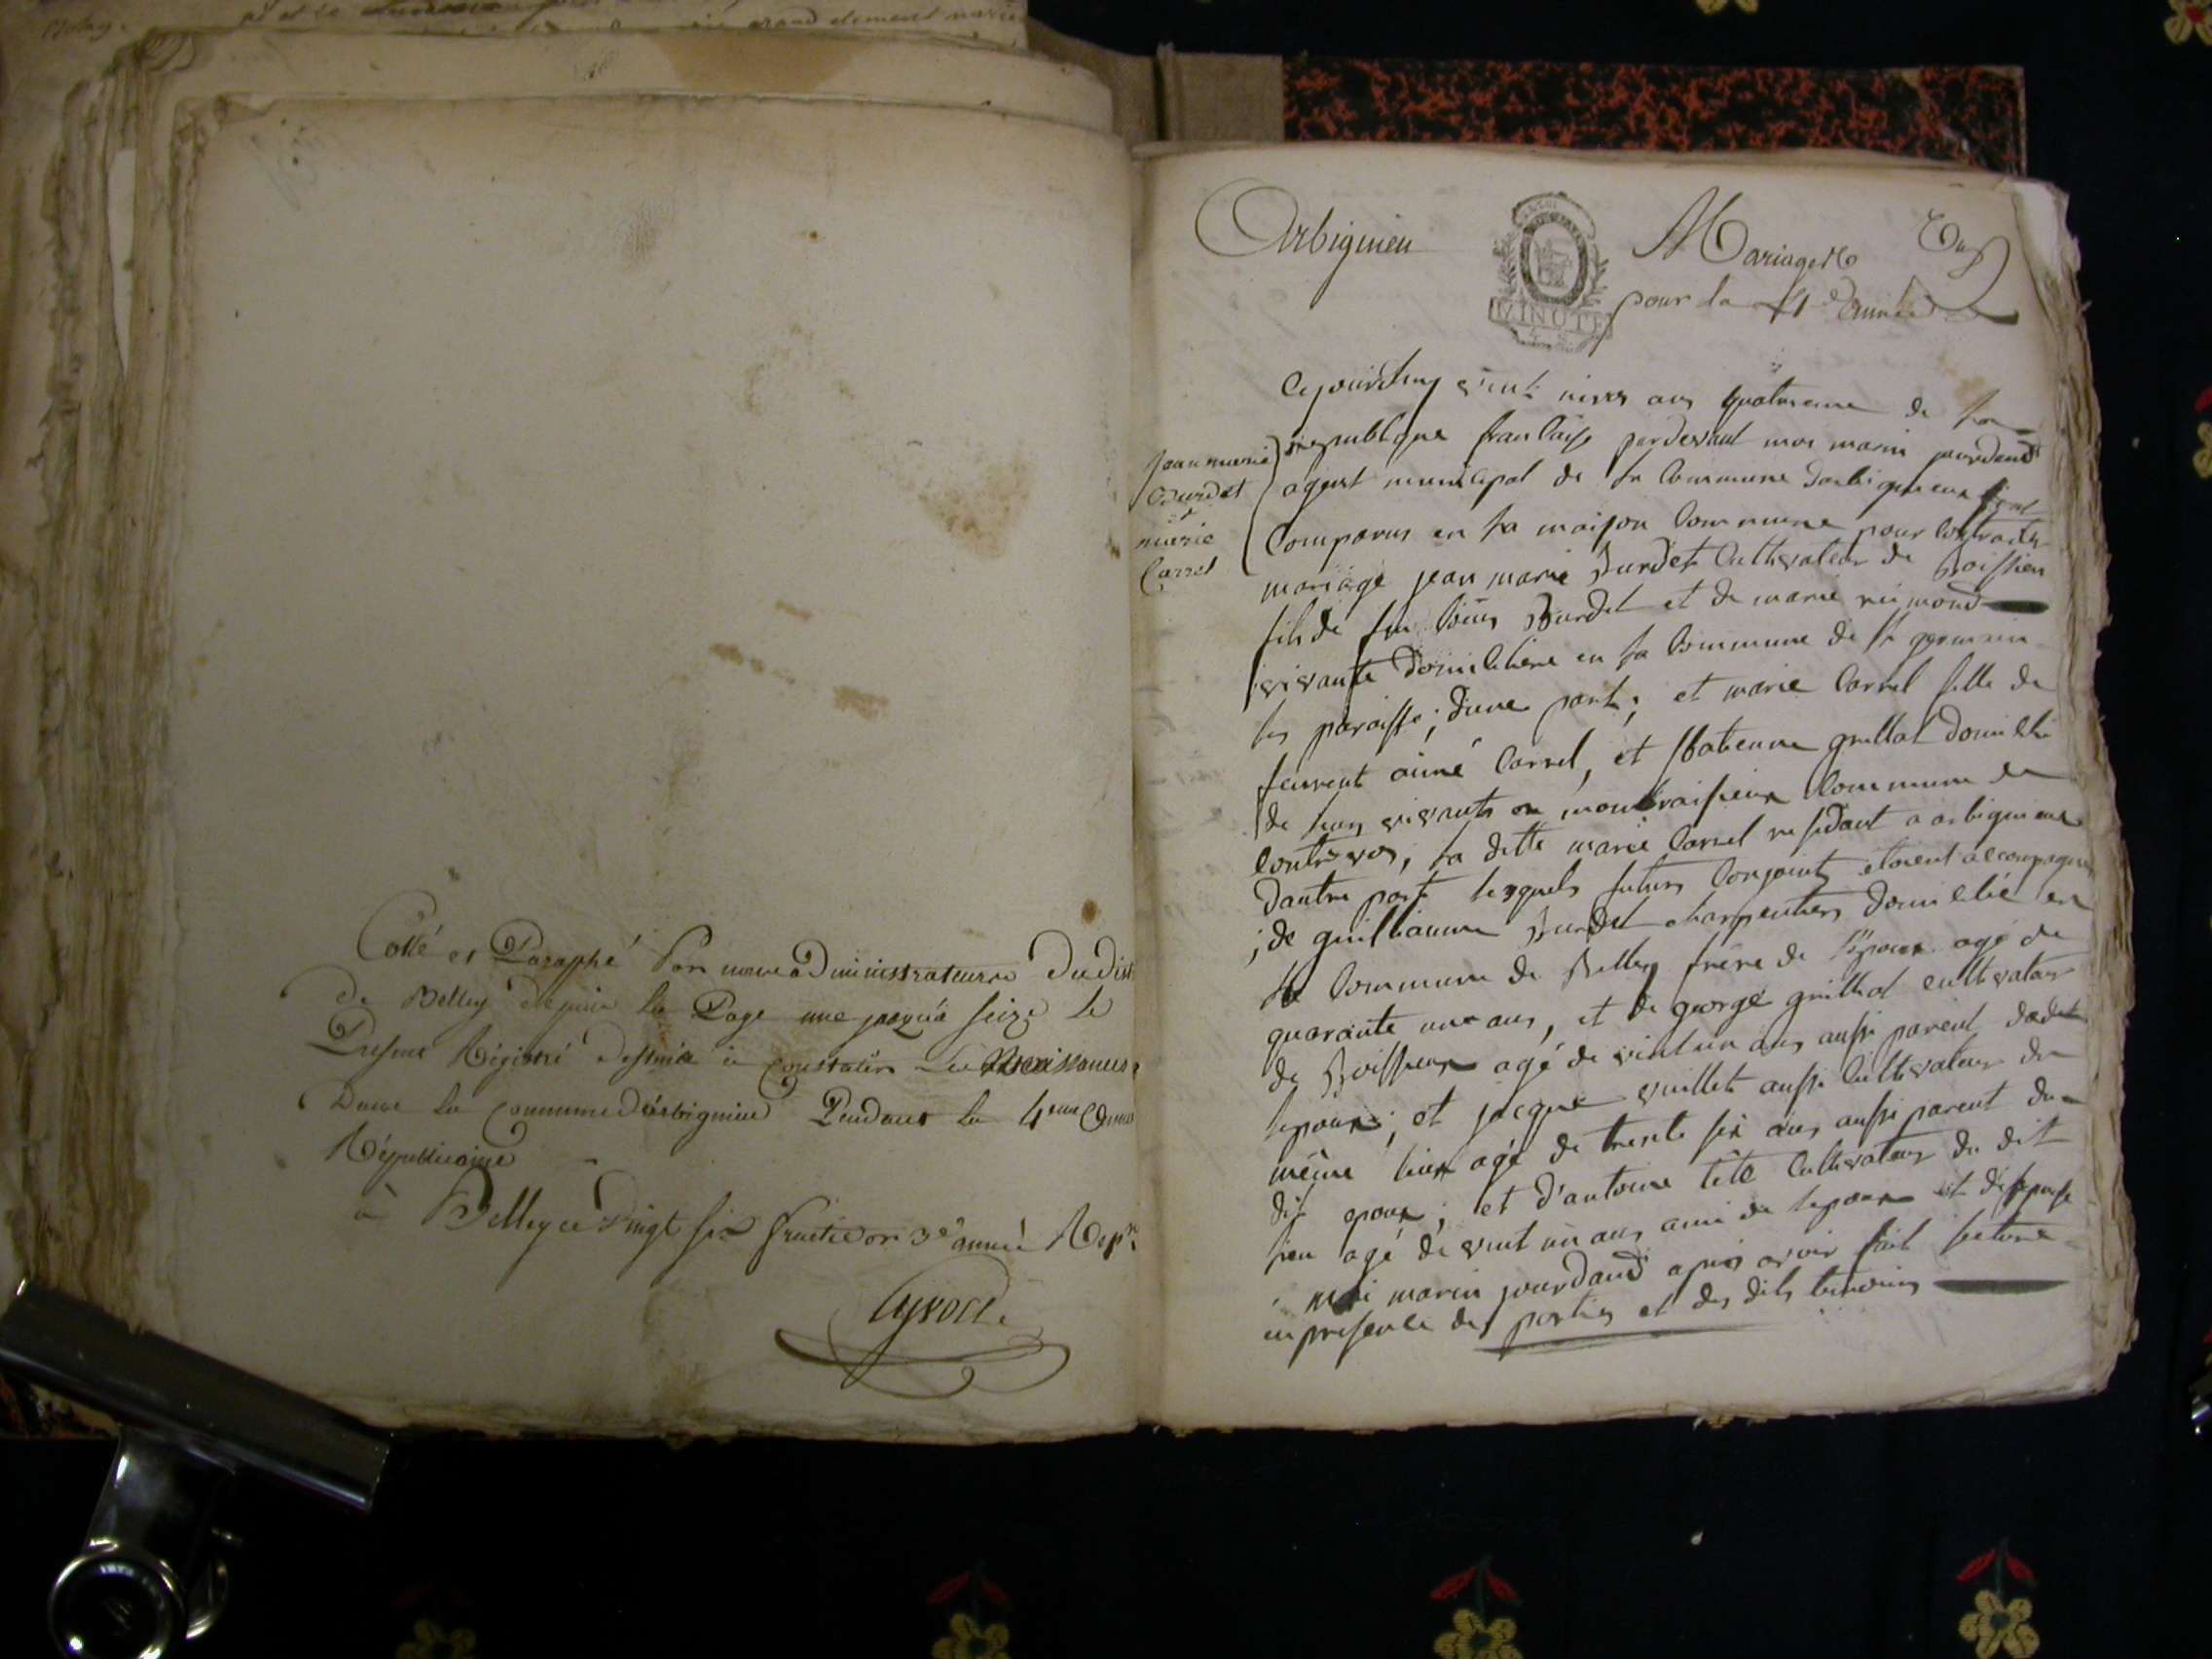 Cotté et Paraphé Par nous administrateur Du dist
de Belley depuis la Page une jusqu'a seize le
Present Régistre destiné à constater les Naissances
Dans la commune d'arbignieu Pendant la 4eme année
Républicaine
à Belley ce vingt six fructidor 3e année Repn.
Arbignieu
MINUTE
Mariages
pour la 4e année
jean marie
Burdet
et
marie
Carrel
Cejourdhuy vint nivos ans quatrieme de la
republique francaise pardevant moi marin jourdand
agent municipal de la Commune darbignieux sont
Comparus en la maison Commune pour Contracter
mariage jean marie Burdet Cultivateur de Boissieu
fils de feu Burdet et de marie reimond
vivante domiciliere en la Commune de st germain
les paroisse; dune part; et marie Carrel fille de
aimé Carrel, et grillat domicilie
de leurs vivants Commune de
la ditte marie Carrel residant a arbignieux
dautre part lesquels futurs Conjoints etoient accompagné
de guilliaume Burdet charpentiers domicilié en
la Commune de Belley frere de l'epoux agé de
quarante un ans, et de george grilliat cultivateur
de Boissieux agé de vint un ans aussi parent dudit
lepoux; et jacque vuillet aussi Cultivateur du
même lieux agé de trente six ans aussi parent du
dit epoux; et d'antoine tête Cultivateur du dit
lieu agé de vint un ans ami de lepoux et de lepouse
moi marin jourdand apres avoir fait lecture
en presence des parties et des dits temoins